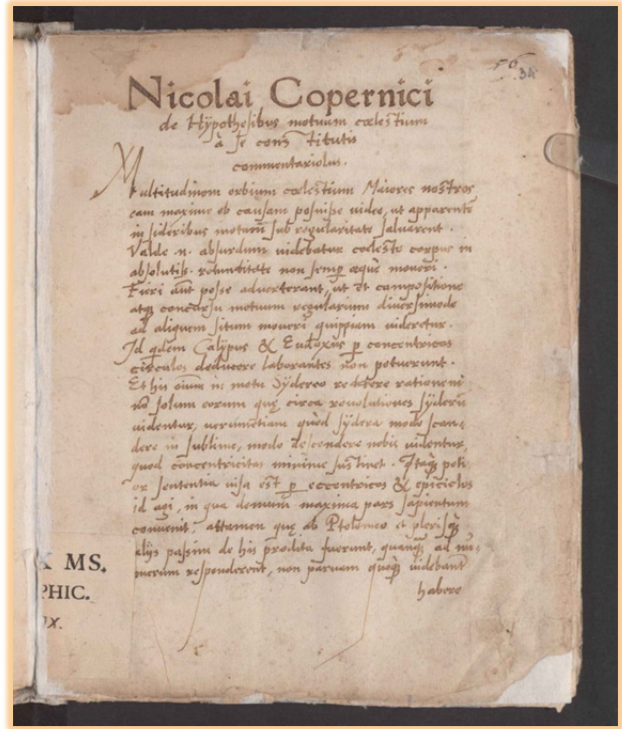 56
34
Nicolai Copernici
de Hÿpothesibus motuum cœlestium
à se constitutis
commentariolus.
Multitudinem orbium cœlestium Maiores nostros
eam maxime ob causam posuisse uideo, ut apparentē
in sideribus motum sub regularitate saluarent.
Valde .n. absurdum uidebatur cœleste corpus in
absolutiss. rotunditate non semꝑ æque moueri.
Fieri aūt posse aduerterant, ut et compositione
atqꝫ concursu motuum regularium diuersimode
ad aliquem situm moueri quippiam uideretur.
Id qdem Calippus & Eudoxus ꝑ concentricos
circulos deducere laborantes non potuerunt.
Et his oium in motu Sÿdereo reddere rationem
nō solum eorum quę circa reuolutiones sÿderū
uidentur, uerumetiam quòd sÿdera modo scan-
dere in sublime, modo descendere nobis uidentur,
quod concentricitas minime sustinet. Itaqꝫ poti
or sententia uisa est ꝑ eccentricos & epiciclos
id agi, in qua demum maxima pars sapientum
conuenit, attamen quę ab Ptolemeo et plerisqꝫ
alÿs passim de his prodita fuerunt, quanqꝫ ad nu-
merum responderent, non paruam quoqꝫ uidebant
habere
X MS.
PHIC.
IX.